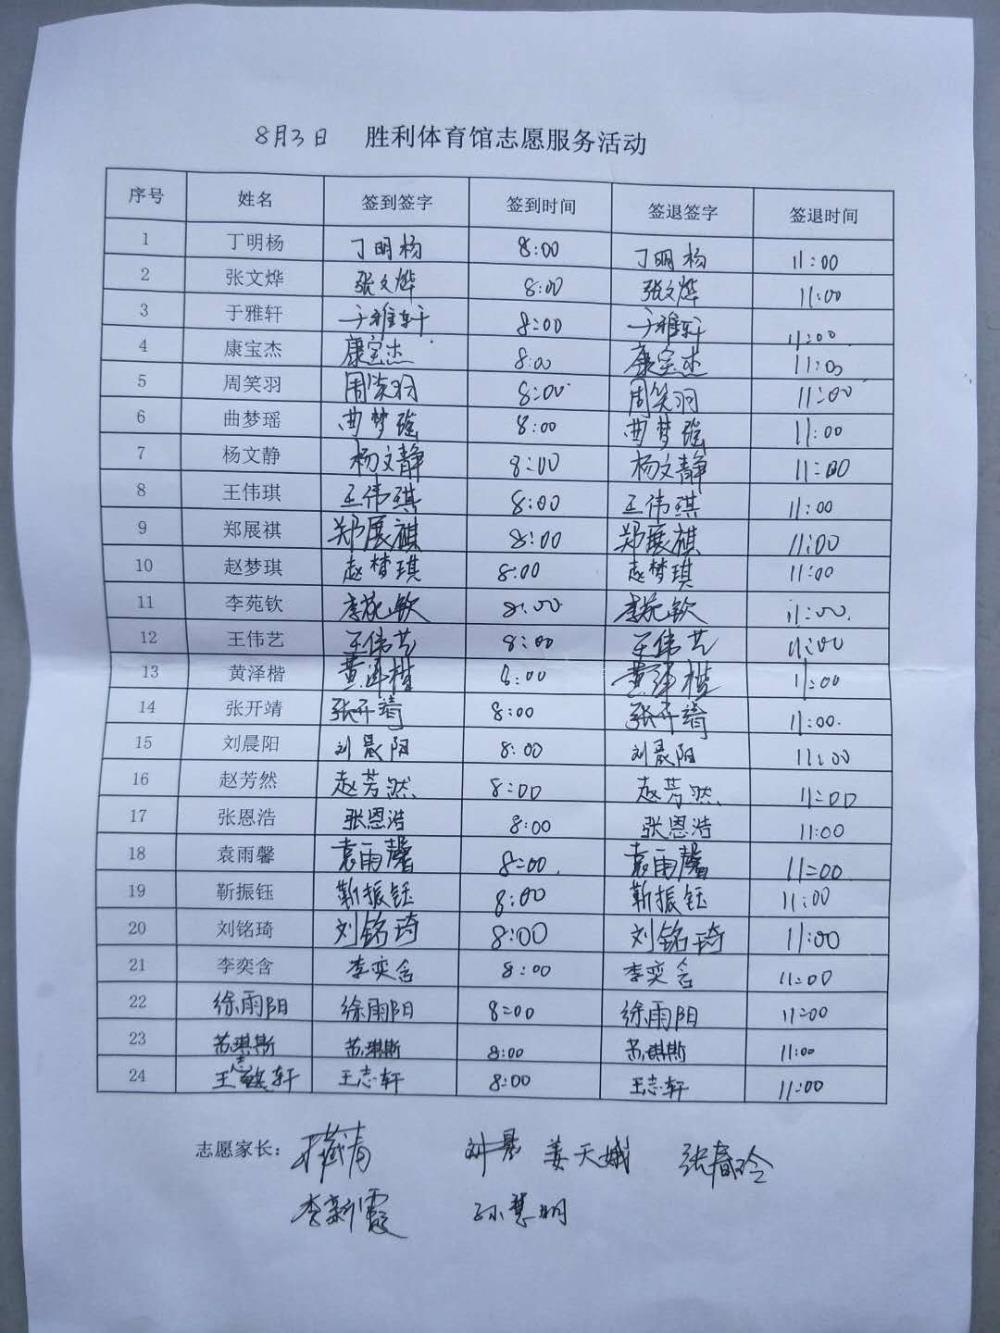 8月3日 胜利体育馆志愿服务活动
序号 姓名 签到签字 签到时间 签退签字 签退时间
1 丁明杨 丁明杨 8:00 丁明杨 11:00
2 张文烨 张文烨 8:00 张文烨 11:00
3 于雅轩 于雅轩 8:00 于雅轩 11:00
4 康宝杰 康宝杰 8:00 康宝杰 11:00
5 周笑羽 周笑羽 8:00 周笑羽 11:00
6 曲梦瑶 曲梦瑶 8:00 曲梦瑶 11:00
7 杨文静 杨文静 8:00 杨文静 11:00
8 王伟琪 王伟琪 8:00 王伟琪 11:00
9 郑展祺 郑展祺 8:00 郑展祺 11:00
10 赵梦琪 赵梦琪 8:00 赵梦琪 11:00
11 李苑钦 李苑钦 8:00 李苑钦 11:00
12 王伟艺 王伟艺 8:00 王伟艺 11:00
13 黄泽楷 黄泽楷 8:00 黄泽楷 11:00
14 张开靖 张开靖 8:00 张开靖 11:00
15 刘晨阳 刘晨阳 8:00 刘晨阳 11:00
16 赵芳然 赵芳然 8:00 赵芳然 11:00
17 张恩浩 张恩浩 8:00 张恩浩 11:00
18 袁雨馨 袁雨馨 8:00 袁雨馨 11:00
19 靳振钰 靳振钰 8:00 靳振钰 11:00
20 刘铭琦 刘铭琦 8:00 刘铭琦 11:00
21 李奕含 李奕含 8:00 李奕含 11:00
22 徐雨阳 徐雨阳 8:00 徐雨阳 11:00
23 苏琪斯 苏琪斯 8:00 苏琪斯 11:00
24 王志轩 王志轩 8:00 王志轩 11:00
志愿家长: 姜天娥 张春玲
李新霞 孙慧明